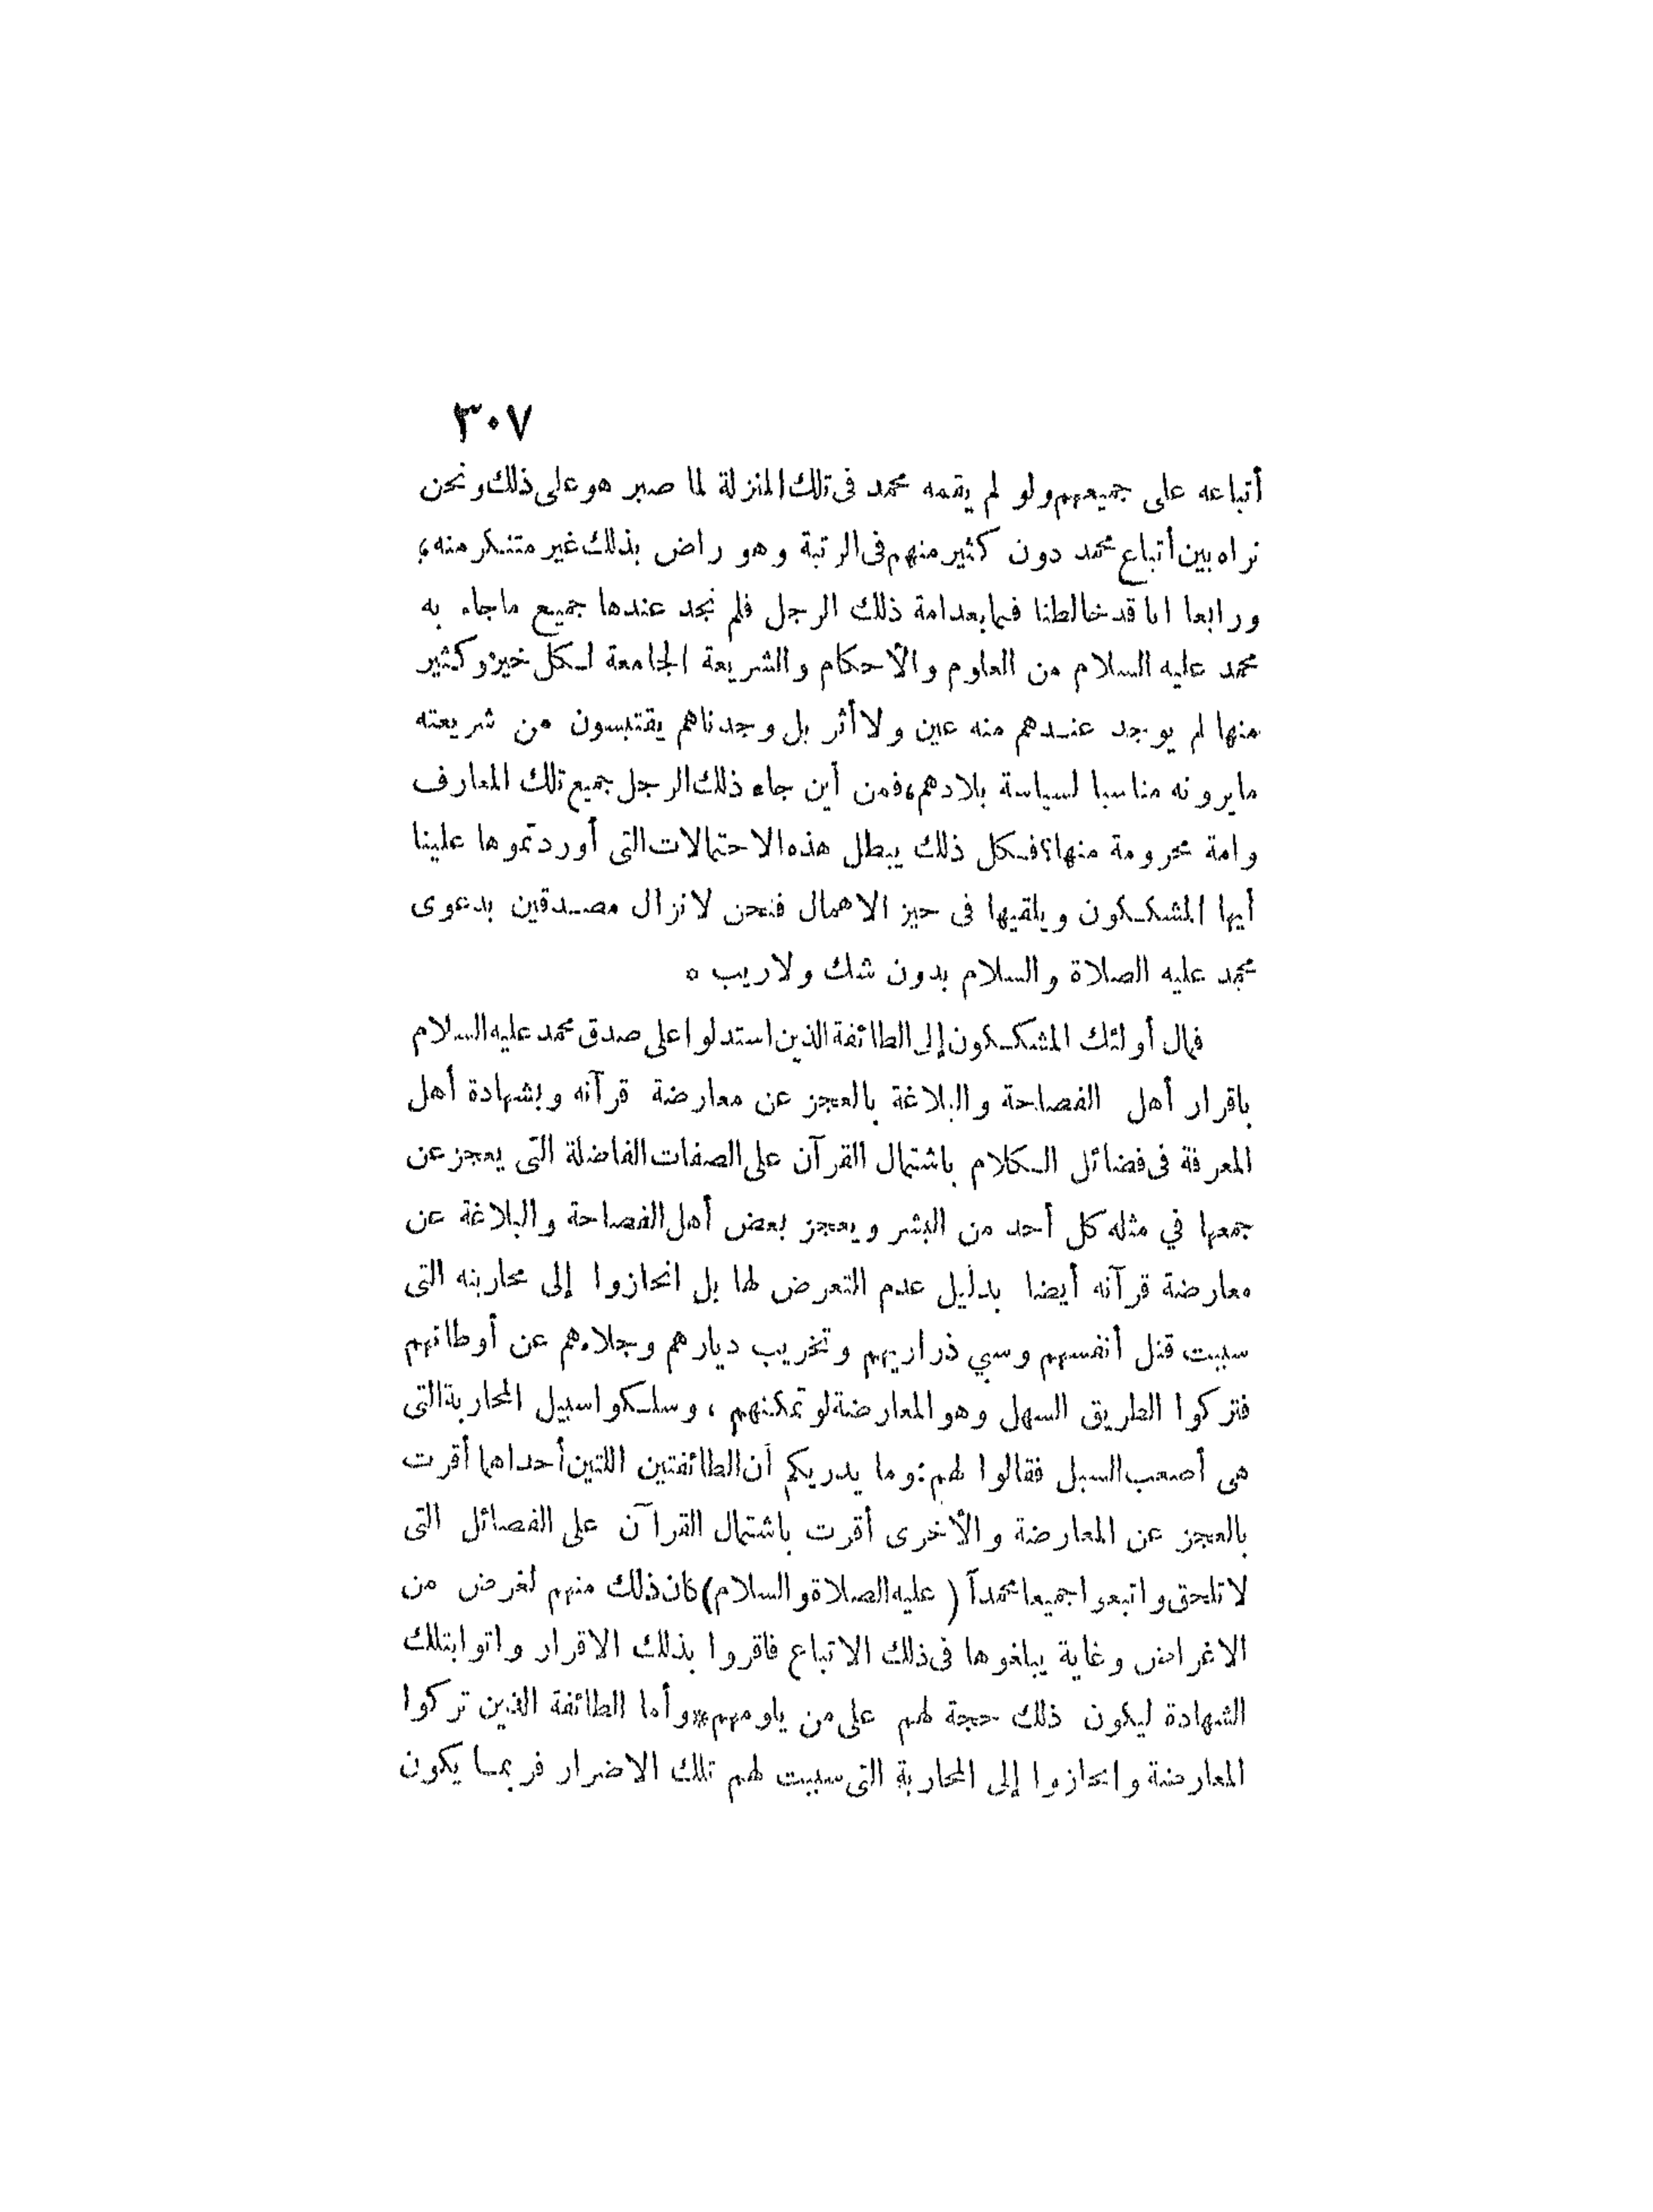 ٣٠٧
أتباعه على جميعهم ولو لم يقمه محمد فى تلك المنزلة لما صبر هو على ذلك ونحن
نراه بين أتباع محمد دون كثير منهم فى الرتبة وهو راض بذلك غير متنكر منه،
ورابعا انا قد خالطنا فيما بعد امة ذلك الرجل فلم نجد عندها جميع ماجاء به
محمد عليه السلام من العلوم والأحكام والشريعة الجامعة لكل خير؛ وكثير
منها لم يوجد عندهم منه عين ولا أثر بل وجدناهم يقتبسون من شريعته
مايرونه مناسبا لسياسة بلادهم، فمن أين جاء ذلك الرجل جميع تلك المعارف
وامة محرومة منها؟ فكل ذلك يبطل هذه الاحتمالات التى أوردتموها علينا
أيها المشككون ويلقيها فى حيز الاهمال فنحن لانزال مصدقين بدعوى
محمد عليه الصلاة والسلام بدون شك ولاريب ٥
فمال أولئك المشككون إلى الطائفة الذين استدلوا على صدق محمد عليه السلام
باقرار أهل الفصاحة والبلاغة بالعجز عن معارضة قرآنه وبشهادة أهل
المعرفة فى فضائل الكلام باشتمال القرآن على الصفات الفاضلة التى يعجز عن
جمعها في مثله كل أحد من البشر وبعجز بعض أهل الفصاحة والبلاغة عن
معارضة قرآنه أيضا بدليل عدم التعرض لها بل انحازوا إلى محاربته التى
سببت قتل أنفسهم وسبي ذراريهم وتخريب ديارهم وجلاءهم عن أوطانهم
فتركوا الطريق السهل وهو المعارضة لو تمكنهم ، وسلكوا سبيل المحاربة التى
هى أصعب السبل فقالوا لهم: وما يدريكم أن الطائفتين اللتين أحداهما أقرت
بالعجز عن المعارضة والأخرى أقرت باشتمال القرآن على الفصائل التى
لاتلحق واتبعوا جميعا محمدآ ( عليه الصلاة والسلام) كان ذلك منهم لغرض من
الاغراض وغاية يبلغوها فى ذلك الاتباع فاقروا بذلك الاقرار واتوا بتلك
الشهادة ليكون ذلك حجة لهم على من يلومهم* وأما الطائفة الذين تركوا
المعارضة وانحازوا إلى المحاربة التى سببت لهم تلك الاضرار فربما يكون